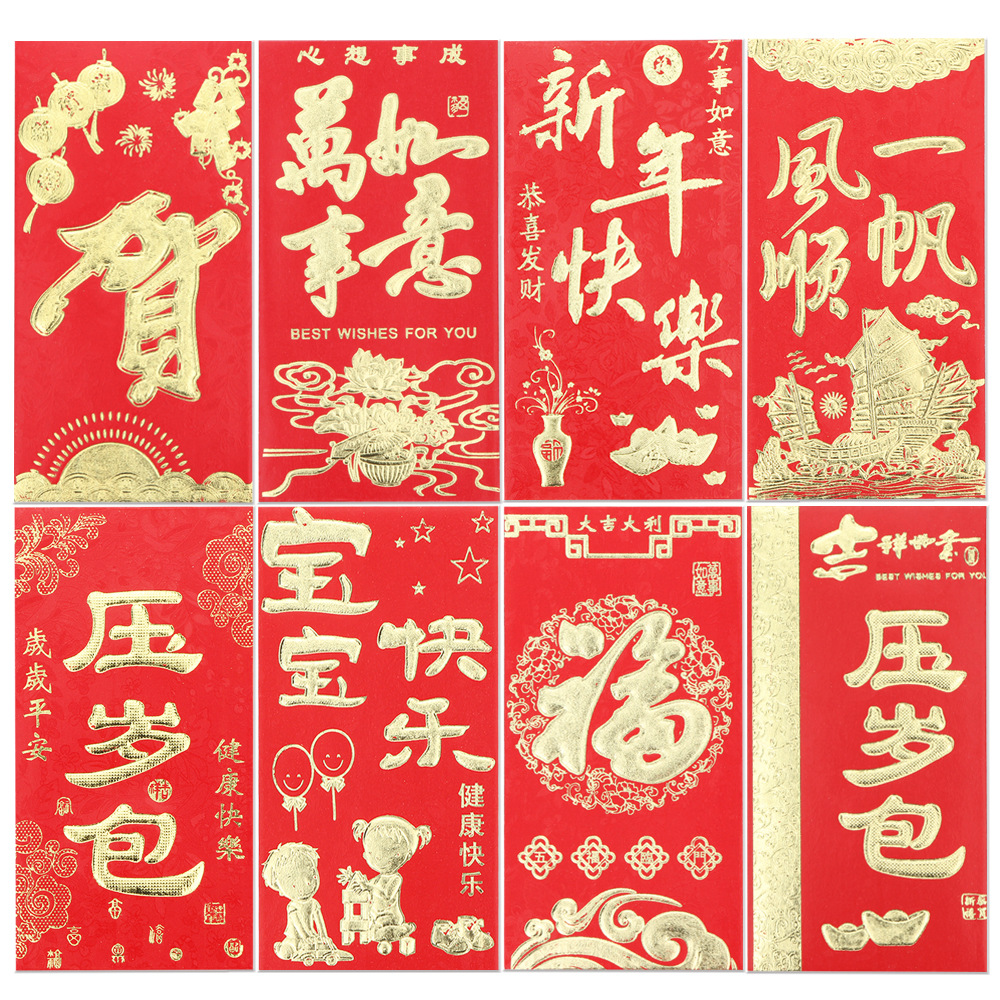 賀
心想事成
萬事如意
BEST WISHES FOR YOU
新年快樂
万事如意
恭喜发财
一帆風順
压岁包
歲歲平安
健康快樂
宝宝快乐
健康快乐
大吉大利
萬事如意
福
五福臨門
吉祥如意
BEST WISHES FOR YOU
压岁包